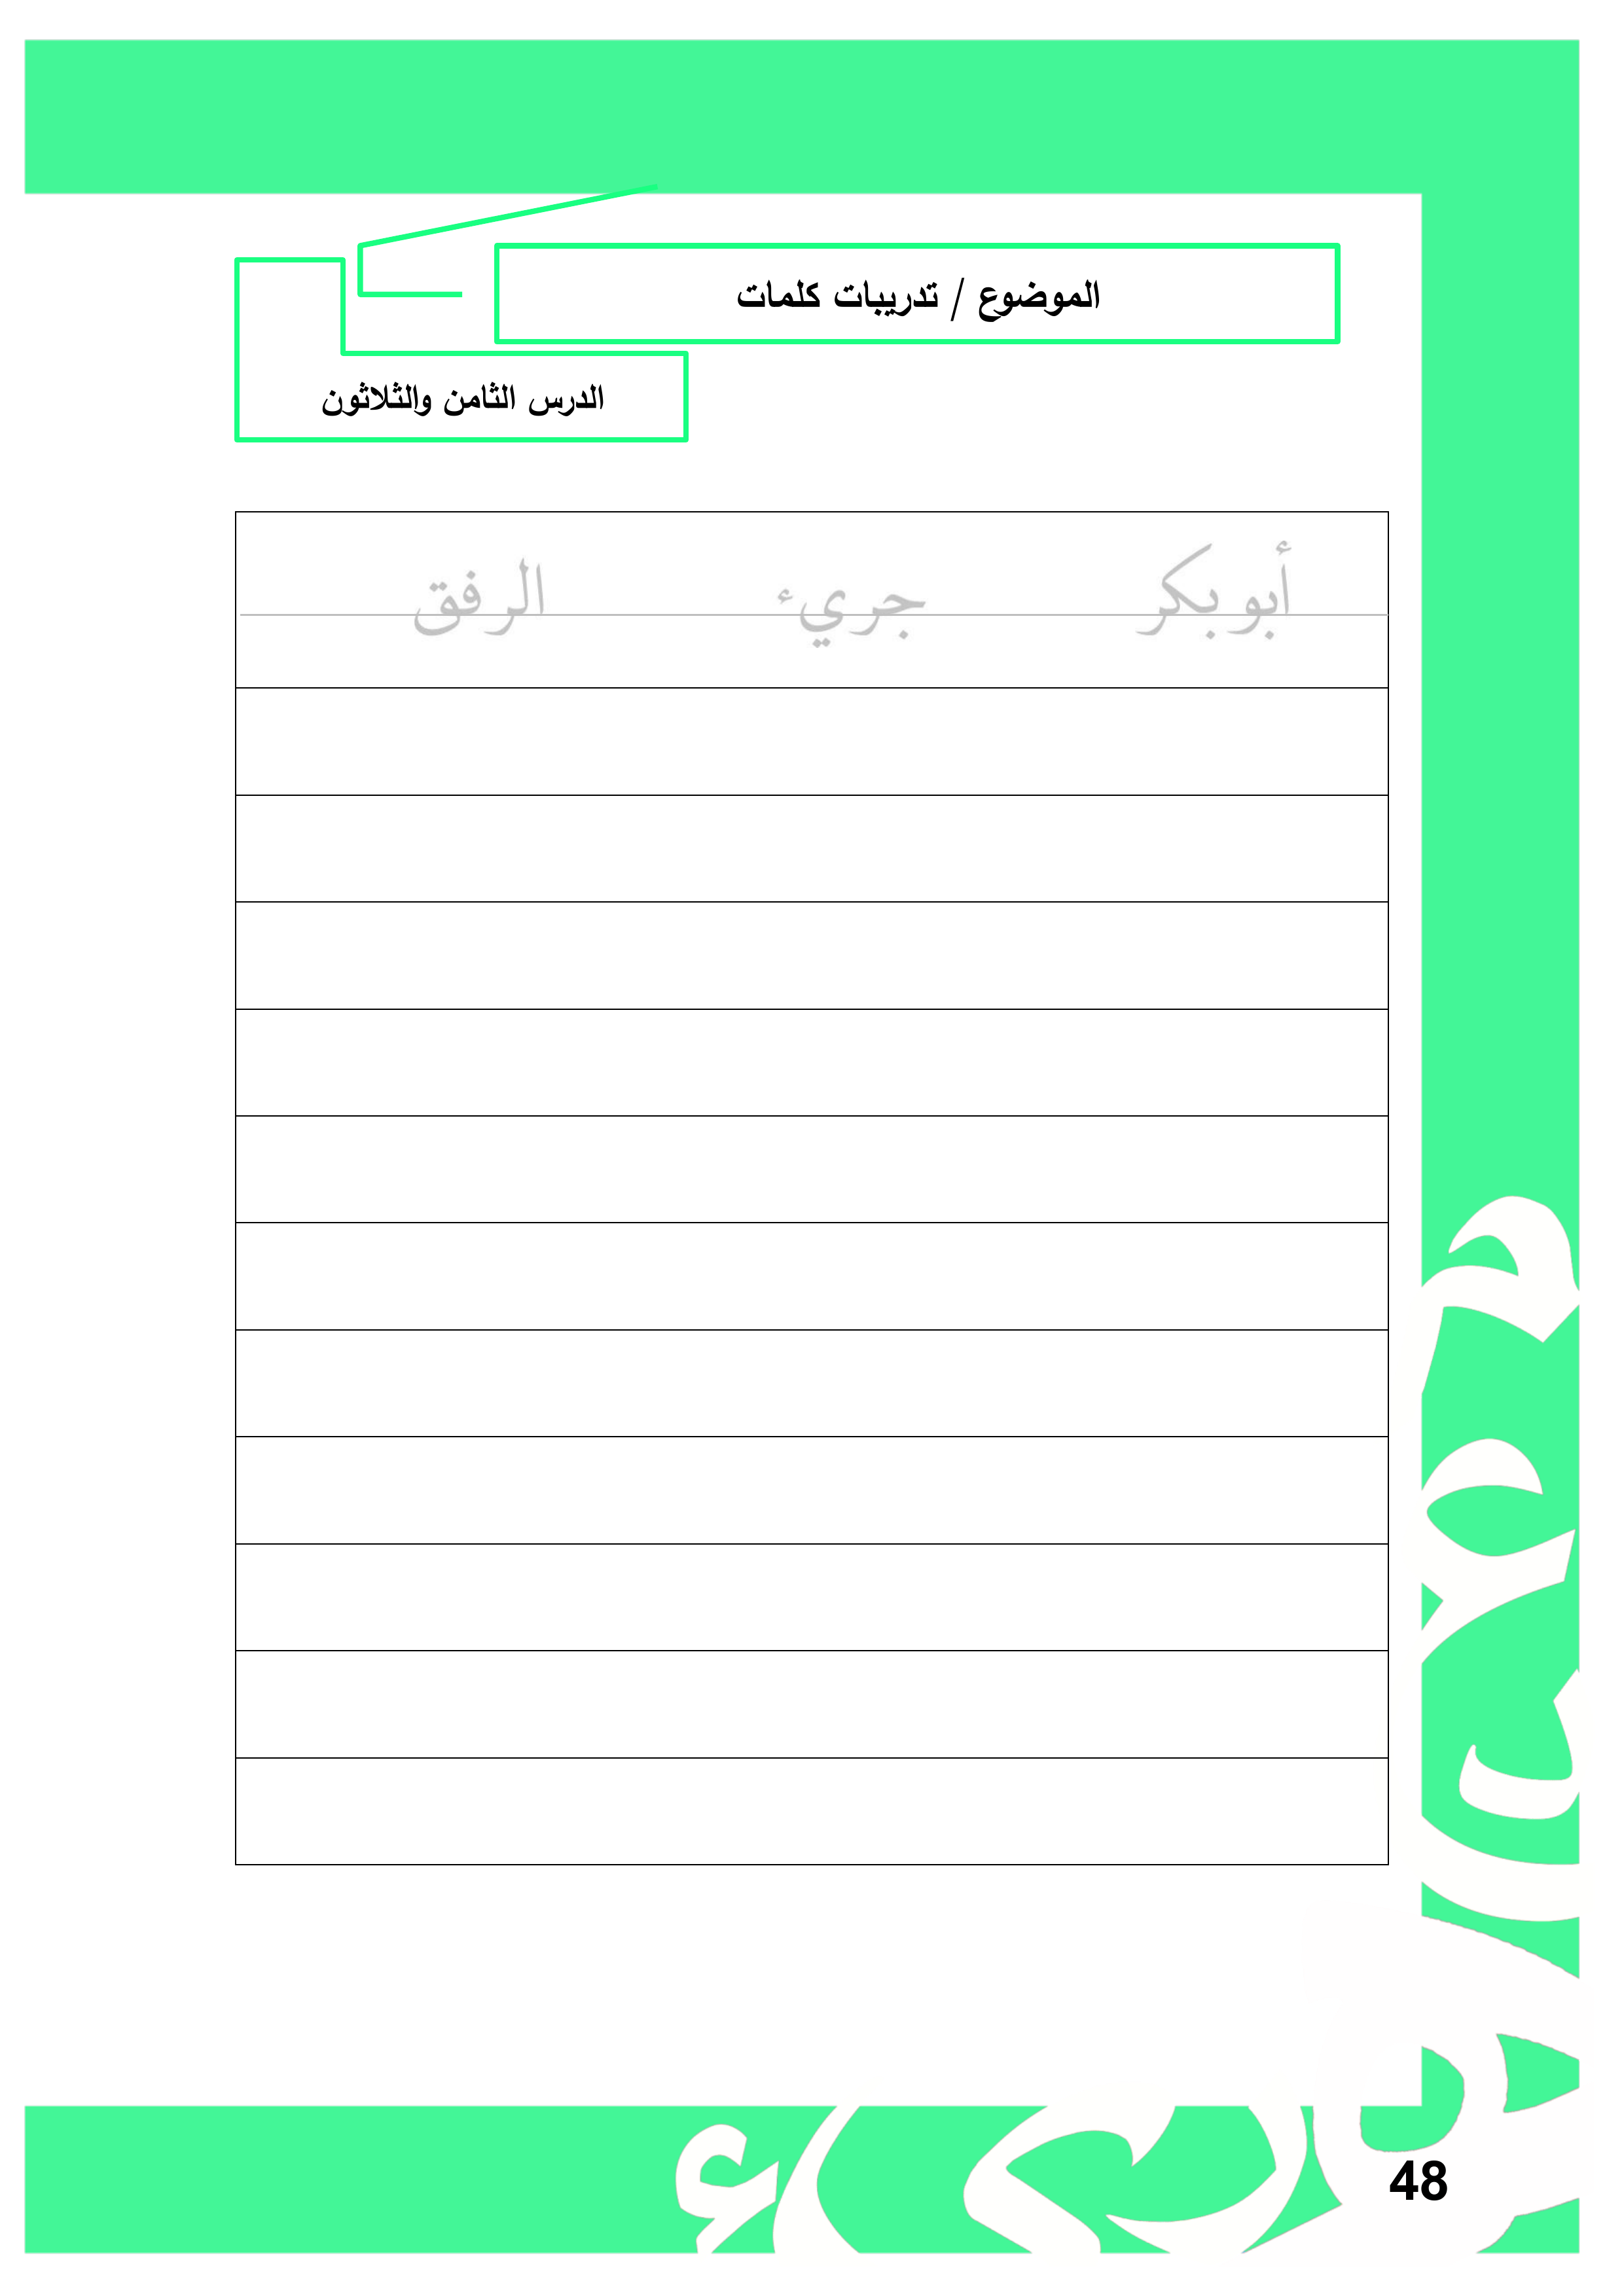 الموضوع / تدريبات كلمات
الدرس الثامن والثلاثون
أبو بكر جريء الرفق
48